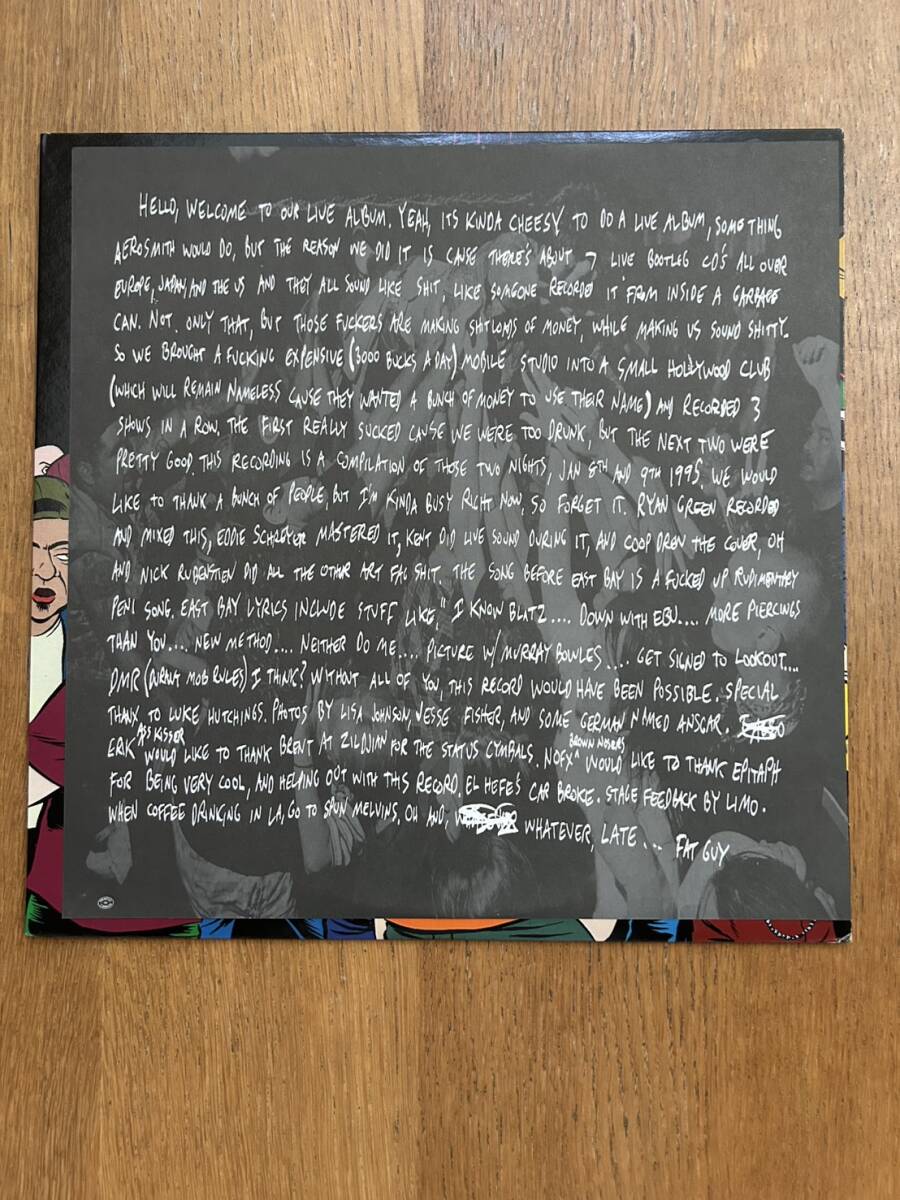 HELLO, WELCOME TO OUR LIVE ALBUM. YEAH, ITS KINDA CHEESY TO DO A LIVE ALBUM, SOMETHING
AEROSMITH WOULD DO, BUT THE REASON WE DID IT IS CAUSE THERE'S ABOUT 7 LIVE BOOTLEG CD'S ALL OVER
EUROPE, JAPAN, AND THE US AND THEY ALL SOUND LIKE SHIT, LIKE SOMEONE RECORDED IT FROM INSIDE A GARBAGE
CAN. NOT ONLY THAT, BUT THOSE FUCKERS ARE MAKING SHITLOADS OF MONEY, WHILE MAKING US SOUND SHITTY.
SO WE BROUGHT A FUCKING EXPENSIVE (3000 BUCKS A DAY) MOBILE STUDIO INTO A SMALL HOLLYWOOD CLUB
(WHICH WILL REMAIN NAMELESS CAUSE THEY WANTED A BUNCH OF MONEY TO USE THEIR NAME) AND RECORDED 3
SHOWS IN A ROW. THE FIRST REALLY SUCKED CAUSE WE WERE TOO DRUNK, BUT THE NEXT TWO WERE
PRETTY GOOD. THIS RECORDING IS A COMPILATION OF THOSE TWO NIGHTS, JAN 8TH AND 9TH 1995. WE WOULD
LIKE TO THANK A BUNCH OF PEOPLE, BUT I'M KINDA BUSY RIGHT NOW, SO FORGET IT. RYAN GREEN RECORDED
AND MIXED THIS, EDDIE SCHREYER MASTERED IT, KENT DID LIVE SOUND DURING IT, AND COOP DREW THE COVER, OH
AND NICK RUBENSTIEN DID ALL THE OTHER ART FAG SHIT. THE SONG BEFORE EAST BAY IS A FUCKED UP RUDIMENTARY
PENI SONG. EAST BAY LYRICS INCLUDE STUFF LIKE, "I KNOW BLATZ.... DOWN WITH EBU.... MORE PIERCINGS
THAN YOU.... NEW METHOD.... NEITHER DO ME.... PICTURE W/ MURRAY BOWLES.... GET SIGNED TO LOOKOUT....
DMR (DURANT MOB RULES) I THINK? WITHOUT ALL OF YOU, THIS RECORD WOULD HAVE BEEN POSSIBLE. SPECIAL
THANX TO LUKE HUTCHINGS. PHOTOS BY LISA JOHNSON, JESSE FISHER, AND SOME GERMAN NAMED ANSCAR.
ERIK ASS KISSER WOULD LIKE TO THANK BRENT AT ZILDJIAN FOR THE STATUS CYMBALS. NOFX "BROWN NOSERS" WOULD LIKE TO THANK EPITAPH
FOR BEING VERY COOL, AND HELPING OUT WITH THIS RECORD. EL HEFE'S CAR BROKE. STAGE FEEDBACK BY LIMO.
WHEN COFFEE DRINKING IN LA, GO TO SPUN MELVINS, OH AND, WHATEVER, LATE... FAT GUY